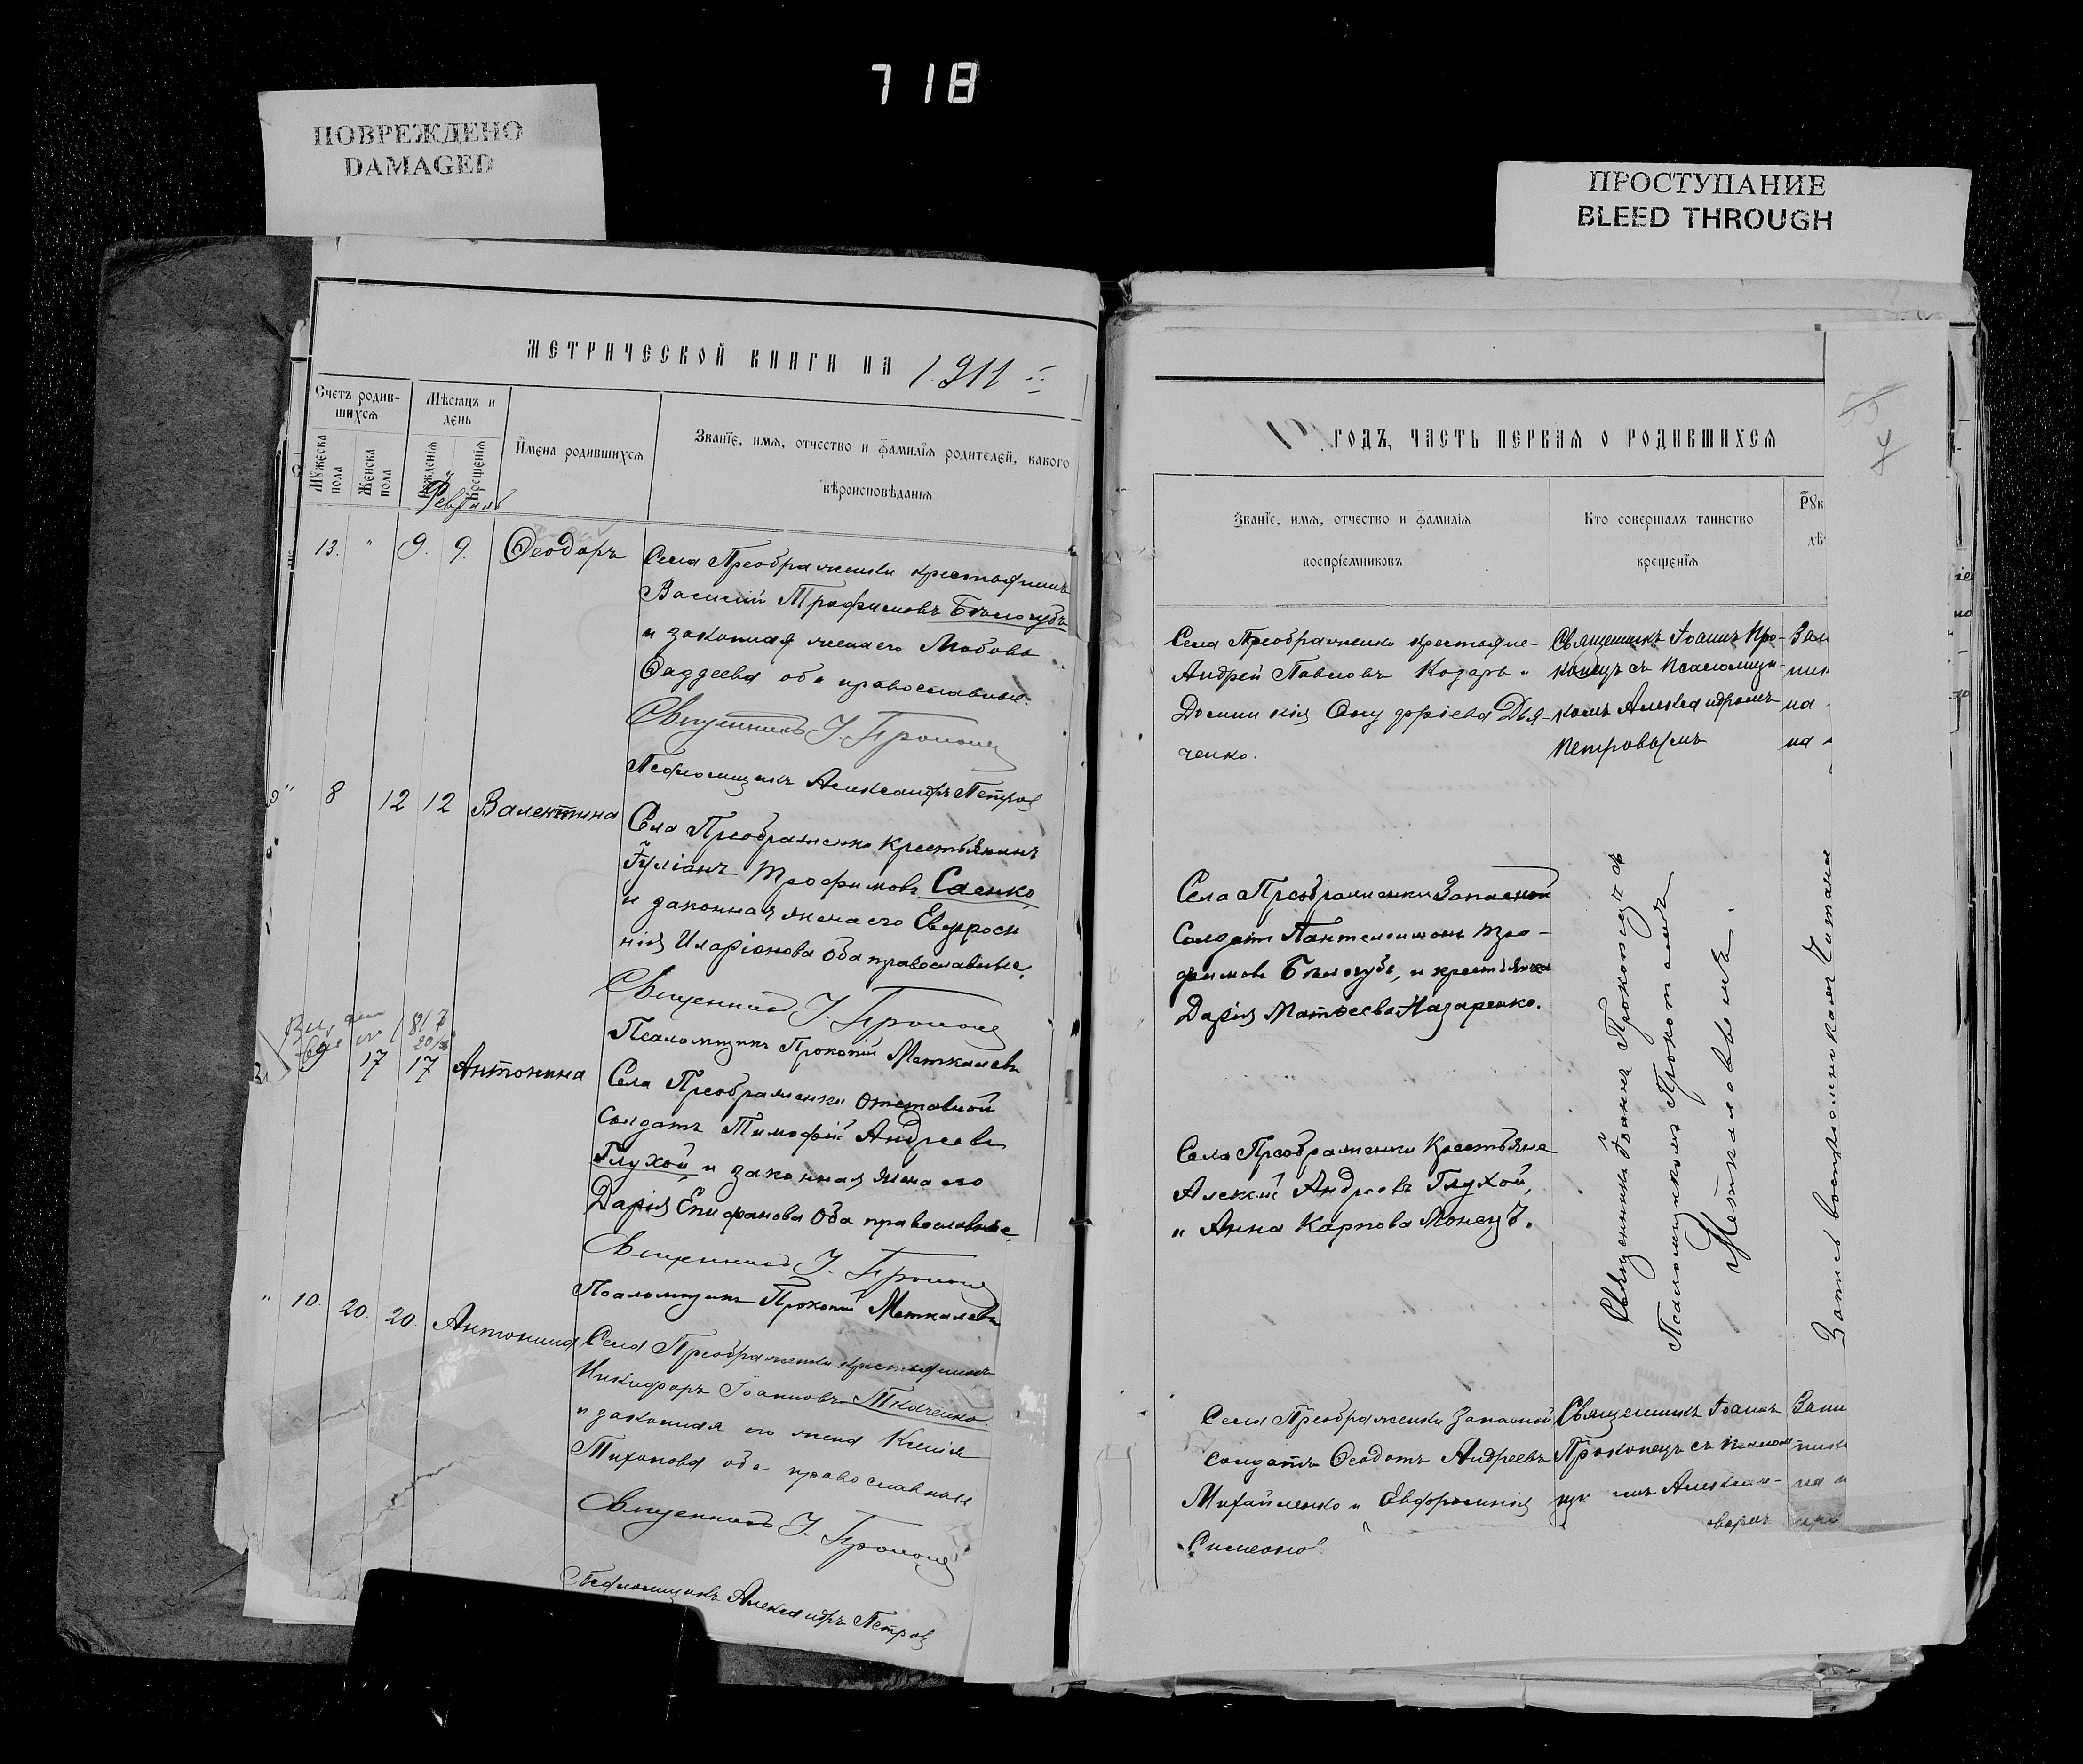 718
ПОВРЕЖДЕНО
DAMAGED
ПРОСТУПАНИЕ
BLEED THROUGH
МЕТРИЧЕСКОЙ КНИГИ НА 1911
Счетъ родив-
шихся
Мѣсяцъ и
день
Имена родившихся
Званіе, имя, отчество и фамилія родителей, какого
вѣроисповѣданія
Мужеска
пола
Женска
пола
Рожденія
Крещенія
Февраль
13. " 9. 9. Ѳеодоръ
Села Преображенки крестьянинъ
Василій Трофимовъ Бѣлогубъ
и законная жена его Любовь
Ѳаддеева оба православные.
Священникъ І. Прокопец
Псаломщикъ Александръ Петров
" 8 12 12 Валентина
Села Преображенки Крестьянинъ
Іуліанъ Трофимовъ Саенко
и законная жена его Евфроси
нія Иларіонова Оба православные.
Священникъ І. Прокопец
Псаломщикъ Прокопій Меткалевъ
9 17 17 Антонина
Села Преображенки Отставной
Солдатъ Тимофій Андреевъ
Глухой и законная жена его
Дарія Епифанова Оба православные
Священникъ І. Прокопец
Псаломщикъ Прокопій Меткалевъ
" 10. 20. 20. Антонина
Села Преображенки крестьянинъ
Никифоръ Іоанновъ Ткаченко
и законная его жена Ксенія
Тихонова оба православные
Священникъ І. Прокопец
Псаломщикъ Александръ Петров
ГОДЪ, ЧАСТЬ ПЕРВАЯ О РОДИВШИХСЯ
Званіе, имя, отчество и фамилія
воспріемниковъ
Кто совершалъ таинство
крещенія
Рук
дѣ
Села Преображенки крестьяне-
Андрей Павловъ Козарь и
Домникія Онуфріева Дья-
ченко.
Священникъ Іоаннъ Про-
копецъ съ Псаломщи-
комъ Александромъ
Петровымъ
Села Преображенки Запасной
Солдатъ Пантелеимонъ Тро-
фимовъ Бѣлогубъ, и крестьянка
Дарія Матѳеева Назаренко.
Села Преображенки Крестьяне
Алексій Андреевъ Глухой,
и Анна Карпова Монецъ.
Священникъ Іоаннъ Прокопецъ съ
Псаломщикомъ Прокопіемъ
Меткалевымъ.
Села Преображенки Запасной
Солдатъ Ѳеодотъ Андреевъ
Михайленко и Евфросинія
Симеонов
Священникъ Іоаннъ
Прокопецъ съ Псалом
щи омъ Алексан-